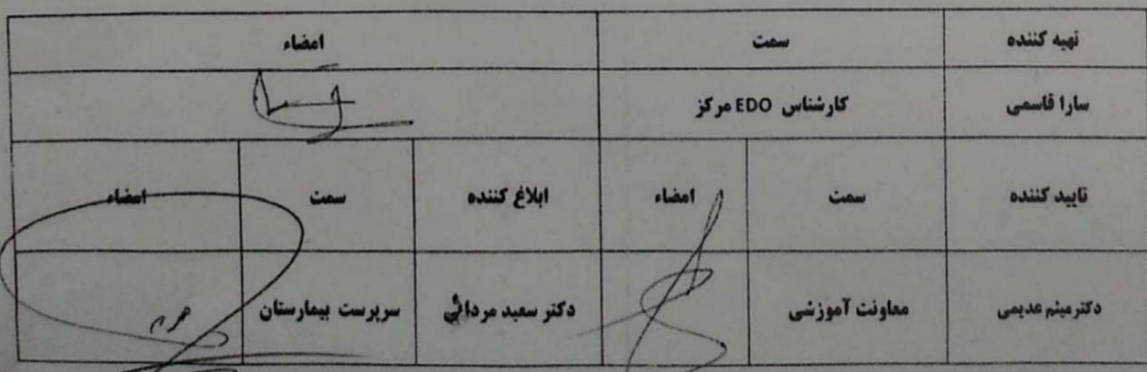 تهیه کننده سمت امضاء
سارا قاسمی کارشناس EDO مرکز
تایید کننده سمت امضاء ابلاغ کننده سمت امضاء
دکتر میثم عدیمی معاونت آموزشی دکتر سعید مردانی سرپرست بیمارستان